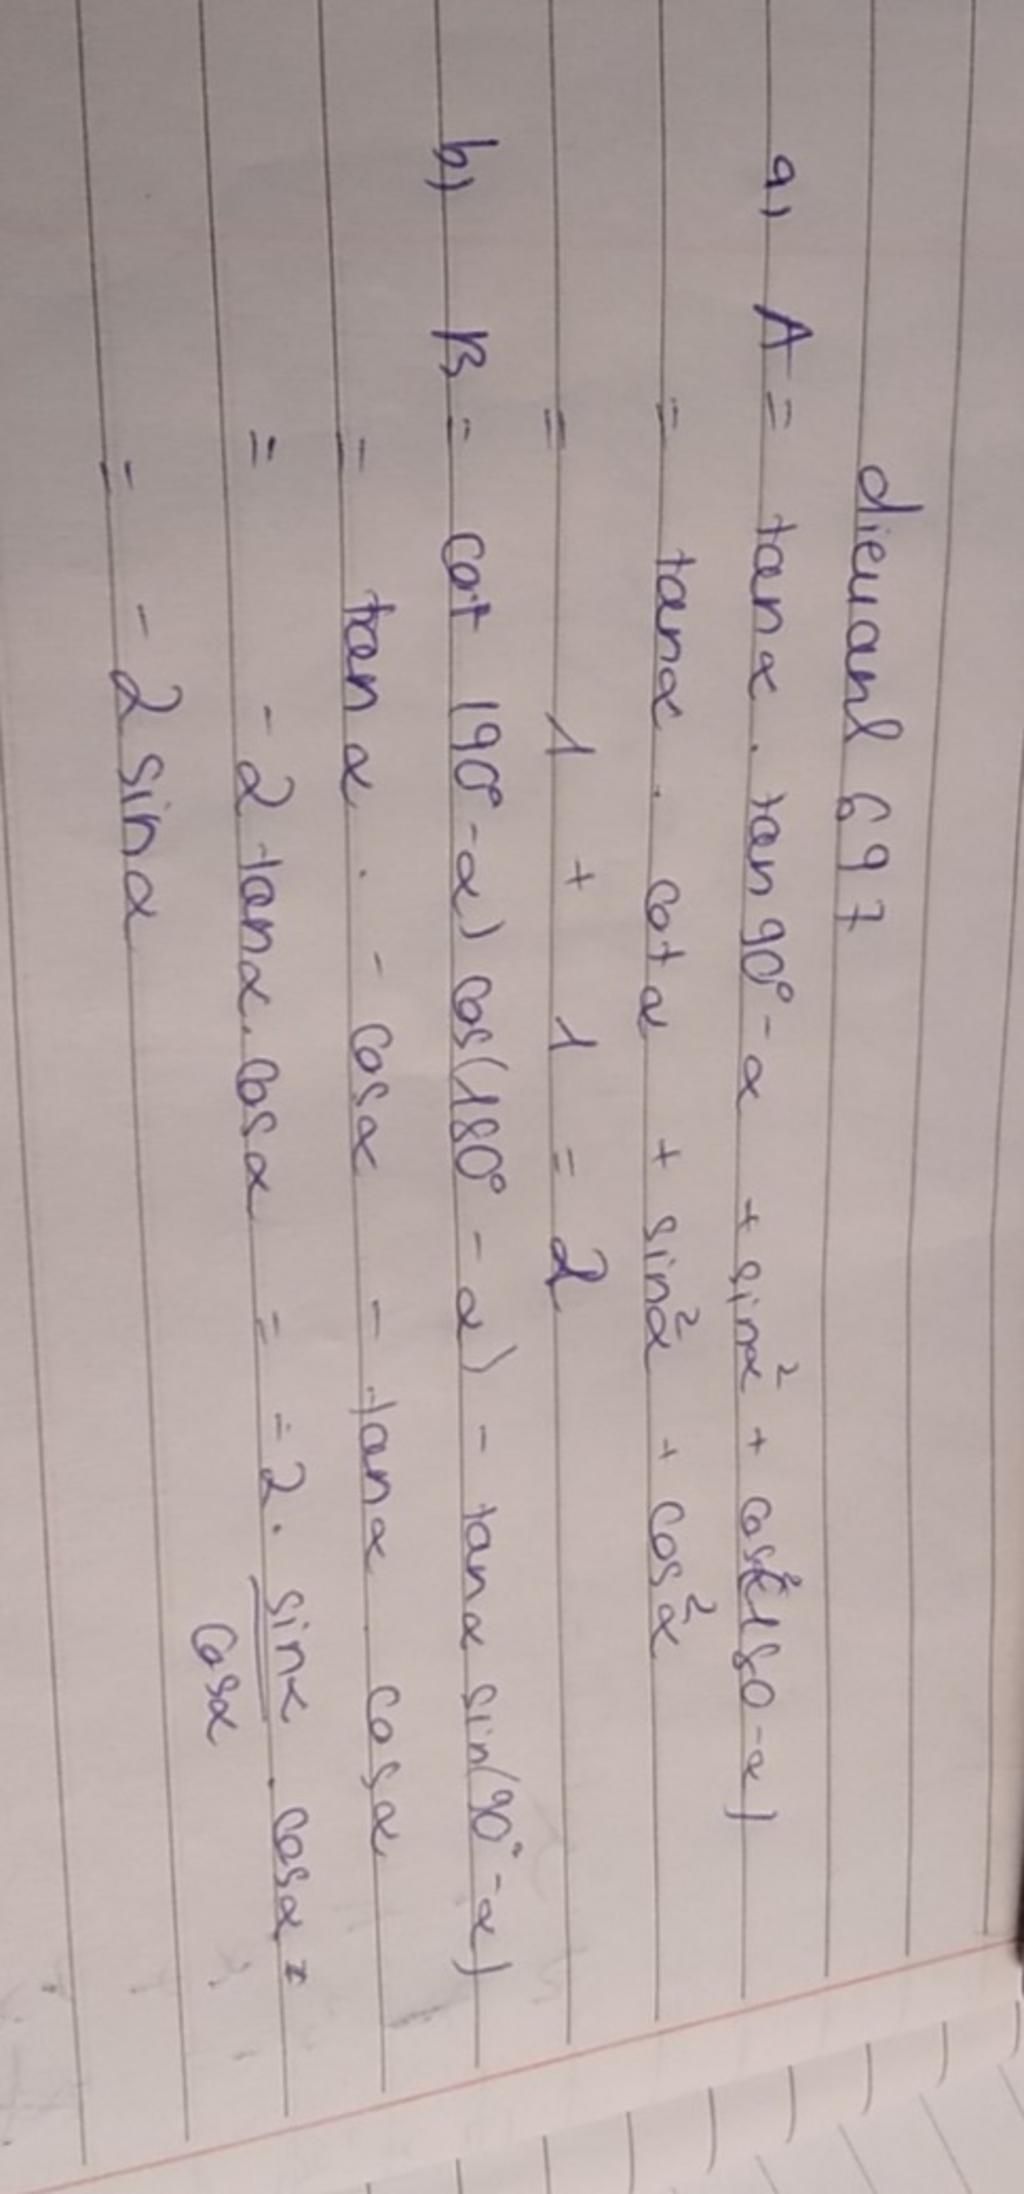 dieuanh 697
a) A = tanα . tan 90° - α + sinα² + cos²(180 - α)
= tanα . cot α + sin²α + cos²α
= 1 + 1 = 2
b) B = cot (90° - α) cos(180° - α) - tanα sin(90° - α)
= tan α . - cosα - tanα . cosα
= - 2 tanα . cosα = - 2 . sinα/cosα . cosα =
= - 2 sinα